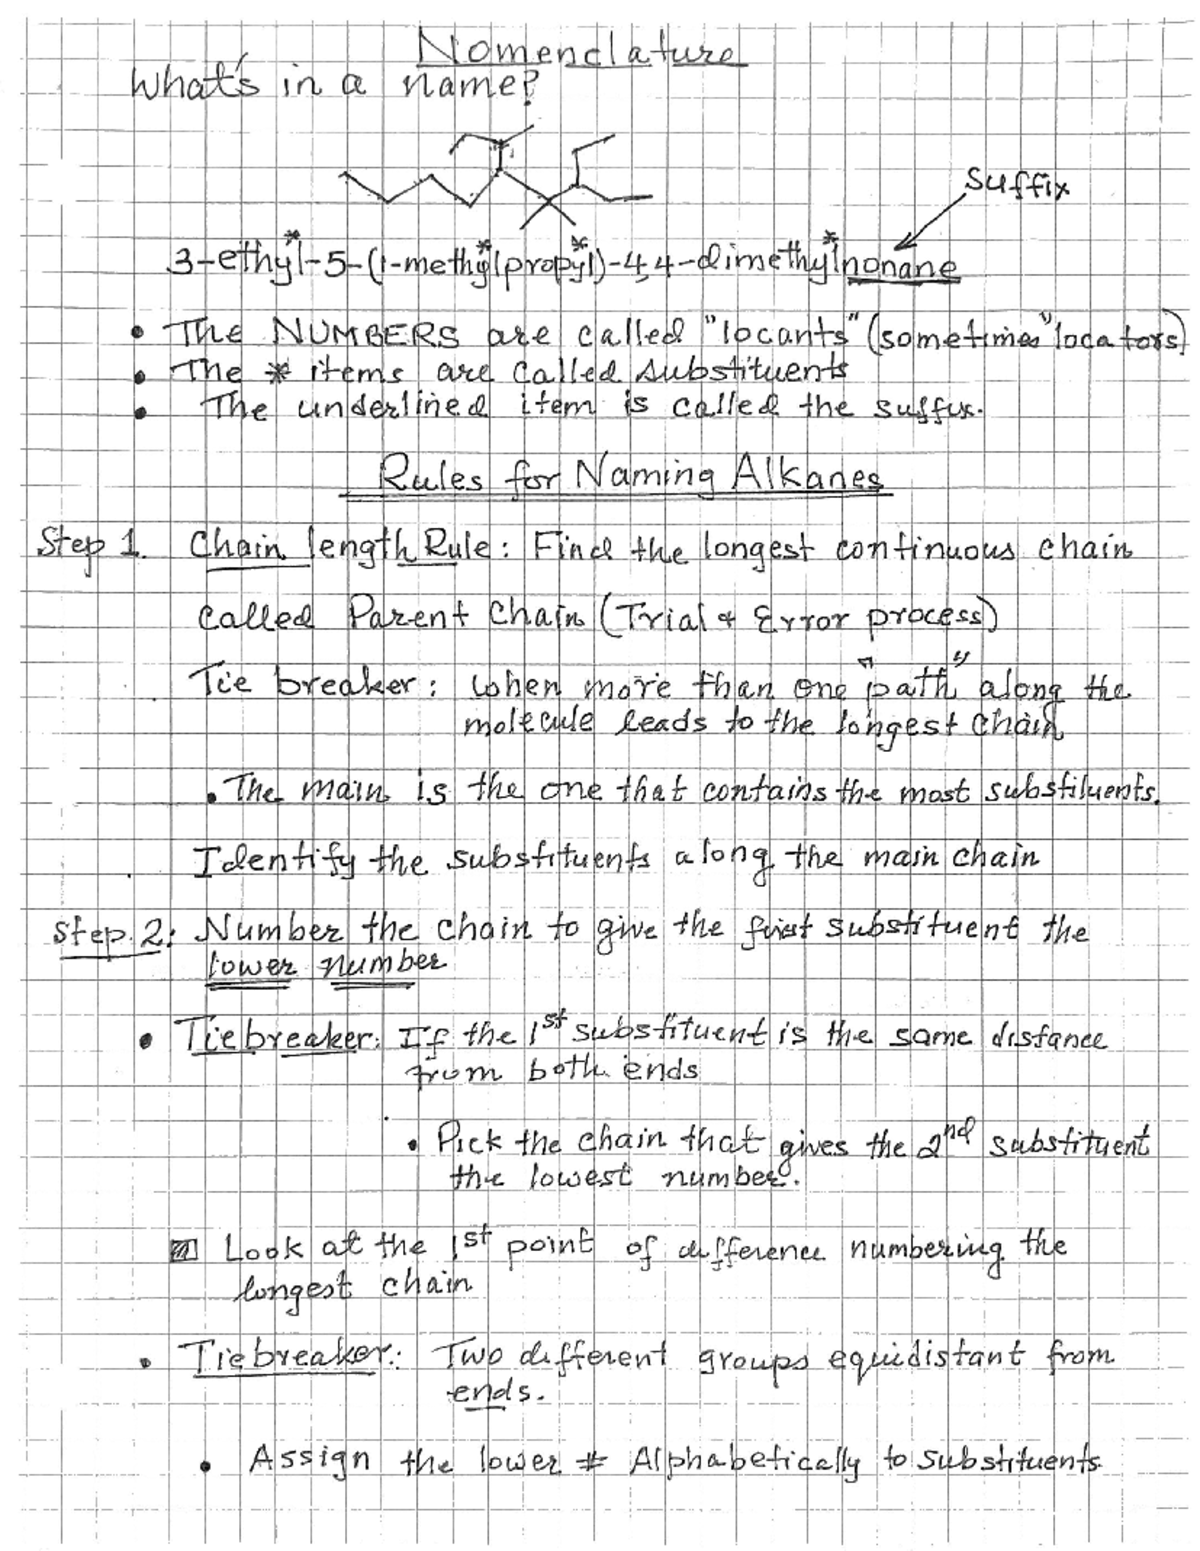 Nomenclature
What's in a name?
Suffix
3-ethyl-5-(1-methylpropyl)-4,4-dimethylnonane
• The NUMBERS are called "locants" (sometimes "locators)
• The * items are called substituents
• The underlined item is called the suffix.
Rules for Naming Alkanes
Step 1. Chain length Rule: Find the longest continuous chain
called Parent Chain (Trial & Error process)
Tie breaker: When more than one "path" along the
molecule leads to the longest chain
• The main is the one that contains the most substituents.
Identify the substituents along the main chain
Step 2: Number the chain to give the first substituent the
lower number
• Tiebreaker: If the 1st substituent is the same distance
from both ends
• Pick the chain that gives the 2nd substituent
the lowest number.
Look at the 1st point of difference numbering the
longest chain
• Tiebreaker: Two different groups equidistant from
ends.
• Assign the lower # Alphabetically to substituents